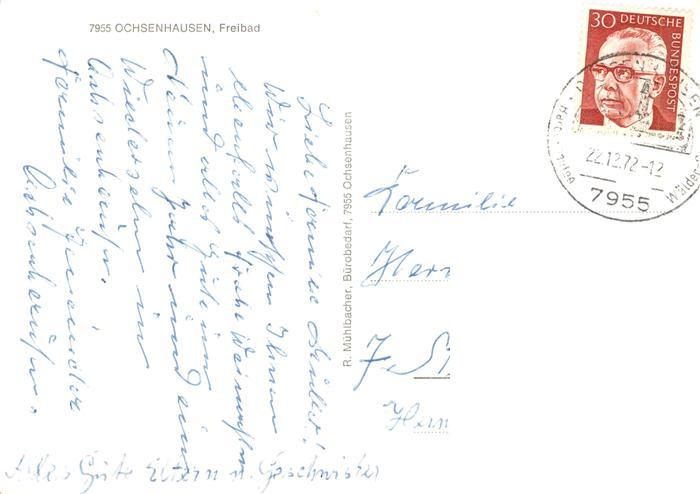 7955 OCHSENHAUSEN, Freibad
Liebe Familie
Wir wünschen Ihnen
ebenfalls frohe Weinachten
und alles Gute im
Neuen Jahr und ein
Wiedersehn in
Ochsenhausen.
Familie
Ochsenhausen.
Alles Gute Eltern u. Geschwister
R. Mühlbacher, Bürobedarf, 7955 Ochsenhausen
30 DEUTSCHE BUNDESPOST
22.12.72-12
7955
Familie
Herr
7-